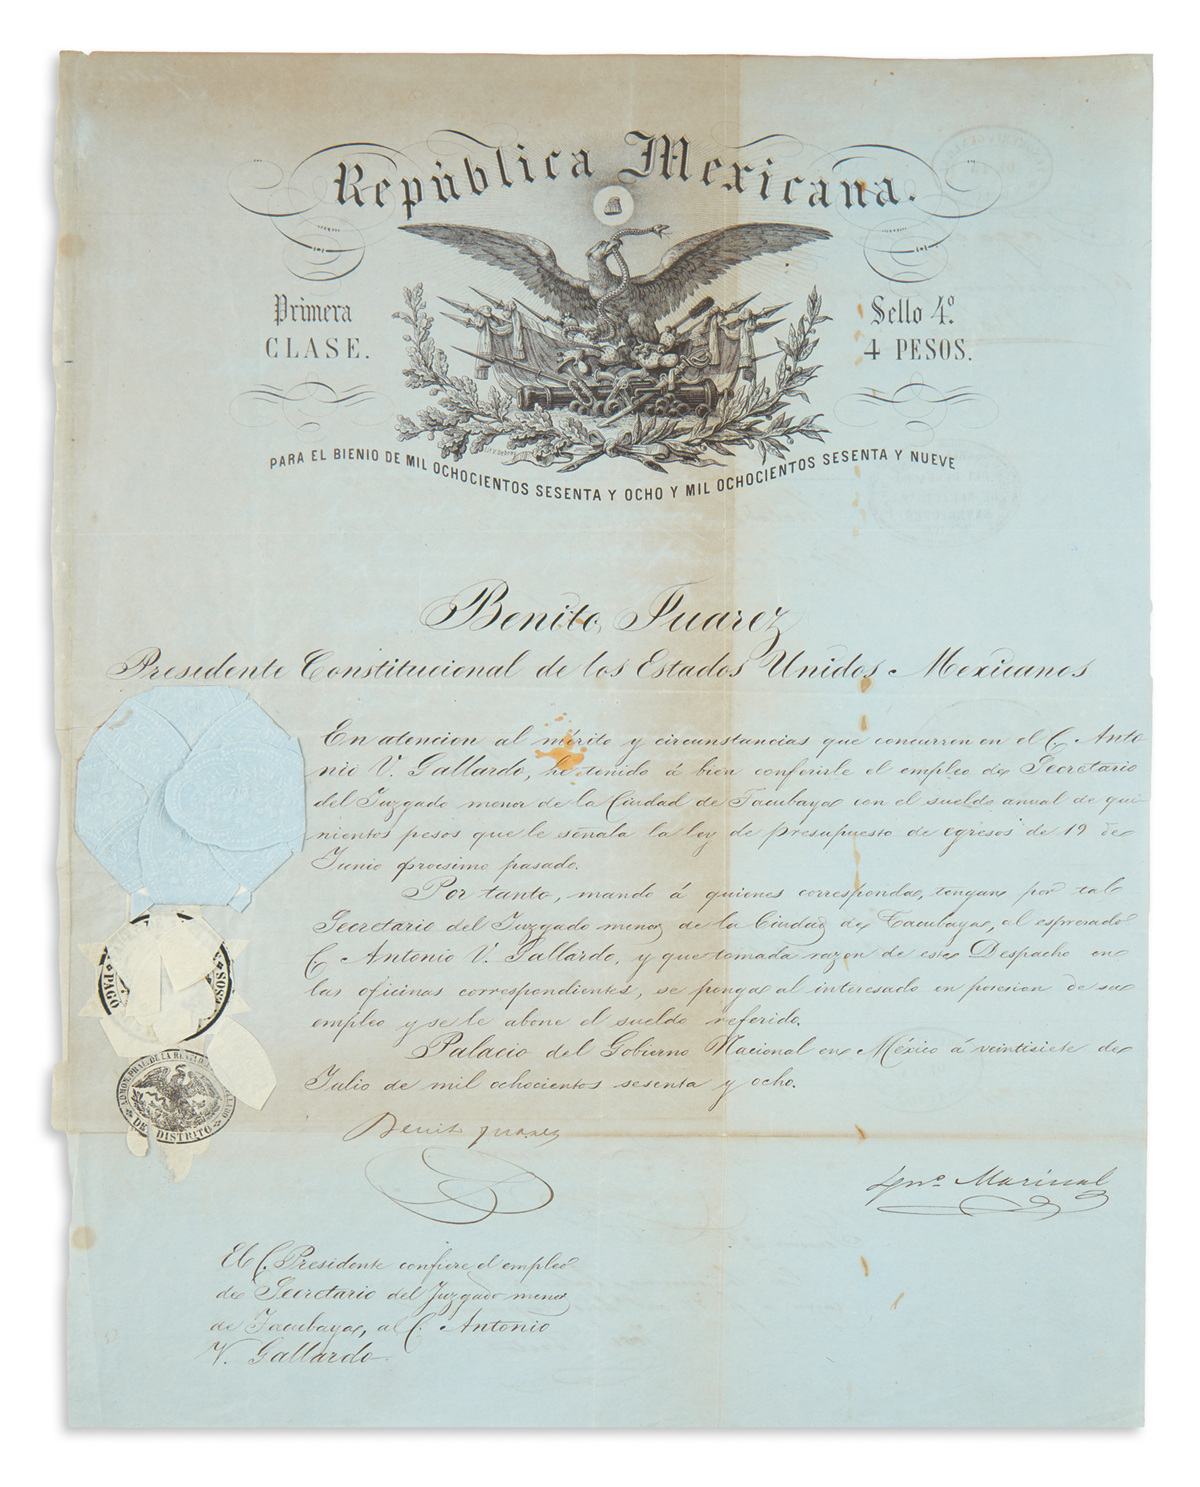 República Mexicana.
Primera
CLASE.
Sello 4º.
4 PESOS.
PARA EL BIENIO DE MIL OCHOCIENTOS SESENTA Y OCHO Y MIL OCHOCIENTOS SESENTA Y NUEVE
Benito Juarez
Presidente Constitucional de los Estados Unidos Mexicanos
En atencion al mérito y circunstancias que concurren en el C. Anto
nio V. Gallardo, he tenido á bien conferirle el empleo de Secretario
del Juzgado menor de la Ciudad de Tacubaya con el sueldo anual de qui
nientos pesos que le señala la ley de presupuesto de egresos de 19 de
Junio procsimo pasado.
Por tanto, mando á quienes corresponda, tengan por tal
Secretario del Juzgado menor de la Ciudad de Tacubaya, al espresado
C. Antonio V. Gallardo, y que tomada razon de este Despacho en
las oficinas correspondientes, se ponga al interesado en posesion de su
empleo y se le abone el sueldo referido.
Palacio del Gobierno Nacional en México á veintisiete de
Julio de mil ochocientos sesenta y ocho.
Benito Juarez
Ignº Mariscal
PAGO
DEL DISTRITO
El C. Presidente confiere el empleo
de Secretario del Juzgado menor
de Tacubaya, al C. Antonio
V. Gallardo